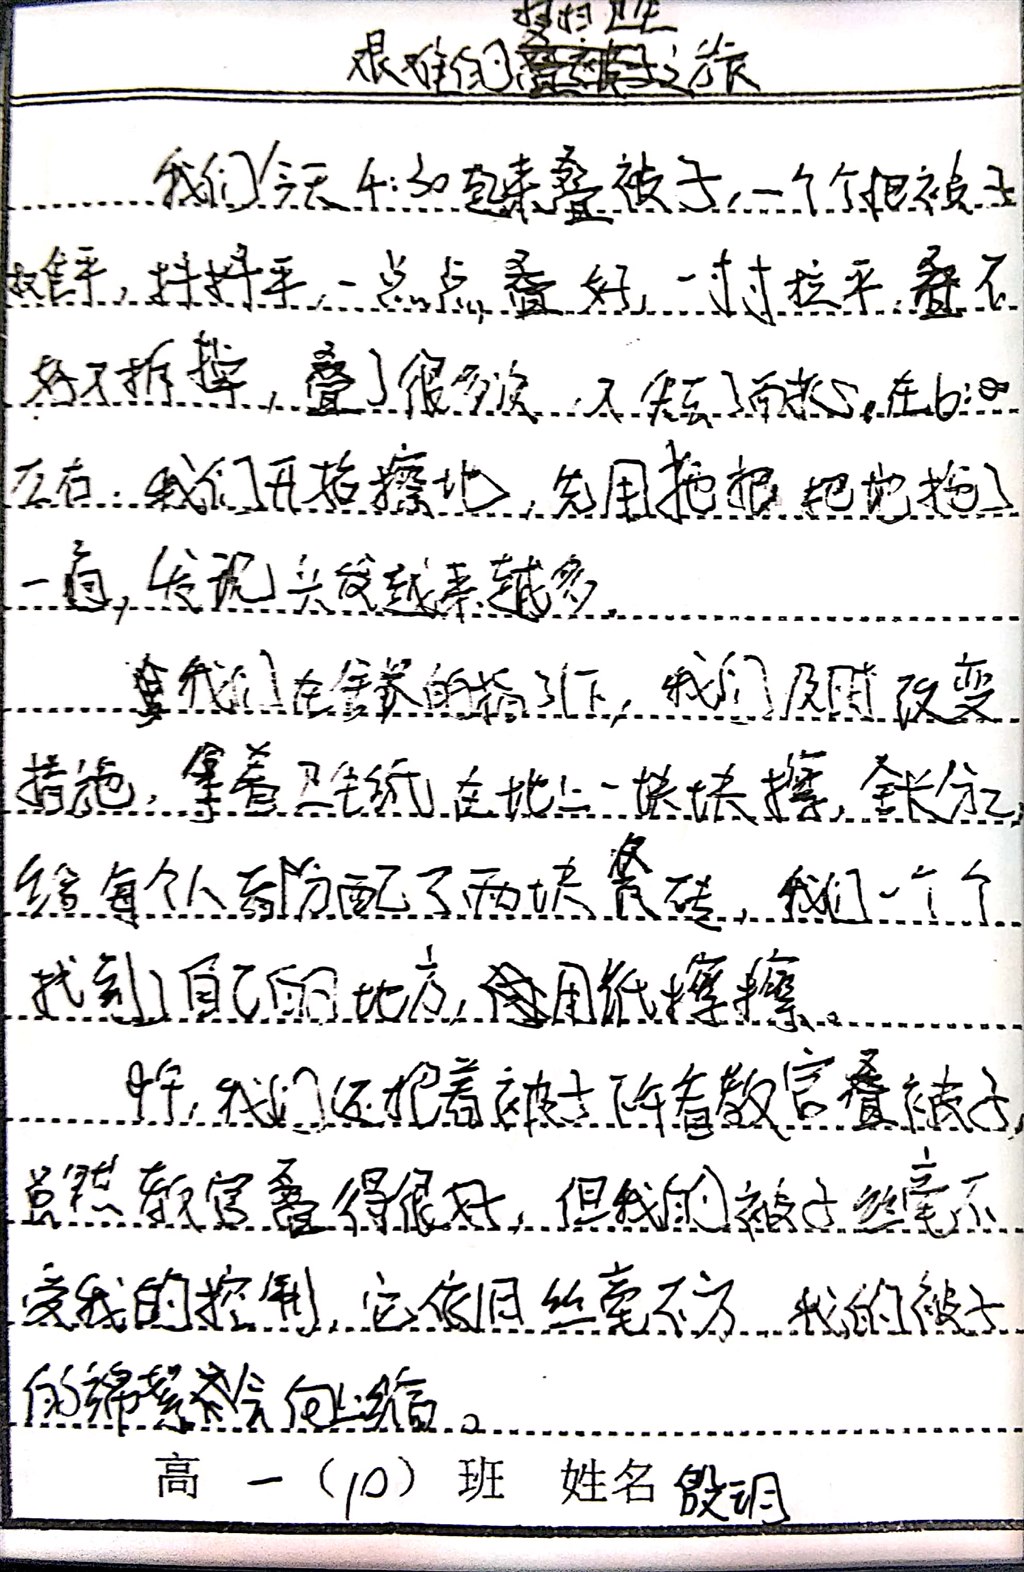 打扫卫生
艰难的叠被子之旅
我们今天4:30起来叠被子,一个个把被子
摊平,抖抖平,一点点叠好,一寸寸拉平,叠不
好又拆掉,叠了很多次,又失去了耐心。在6:00
左右,我们开始擦地,先用拖把把地拖了
一直,发现头发越来越多。
我们在舍长的指引下,我们及时改变
措施,拿着卫生纸在地上一块块擦,舍长分工,
给每个人都分配了两块瓷砖,我们一个个
找到了自己的地方,用纸擦擦。
中午,我们还抱着被子下午看教官叠被子,
虽然教官叠得很好,但我的被子丝毫不
受我的控制,它依旧丝毫不方,我的被子
的棉絮会向上缩。
高一(10)班 姓名